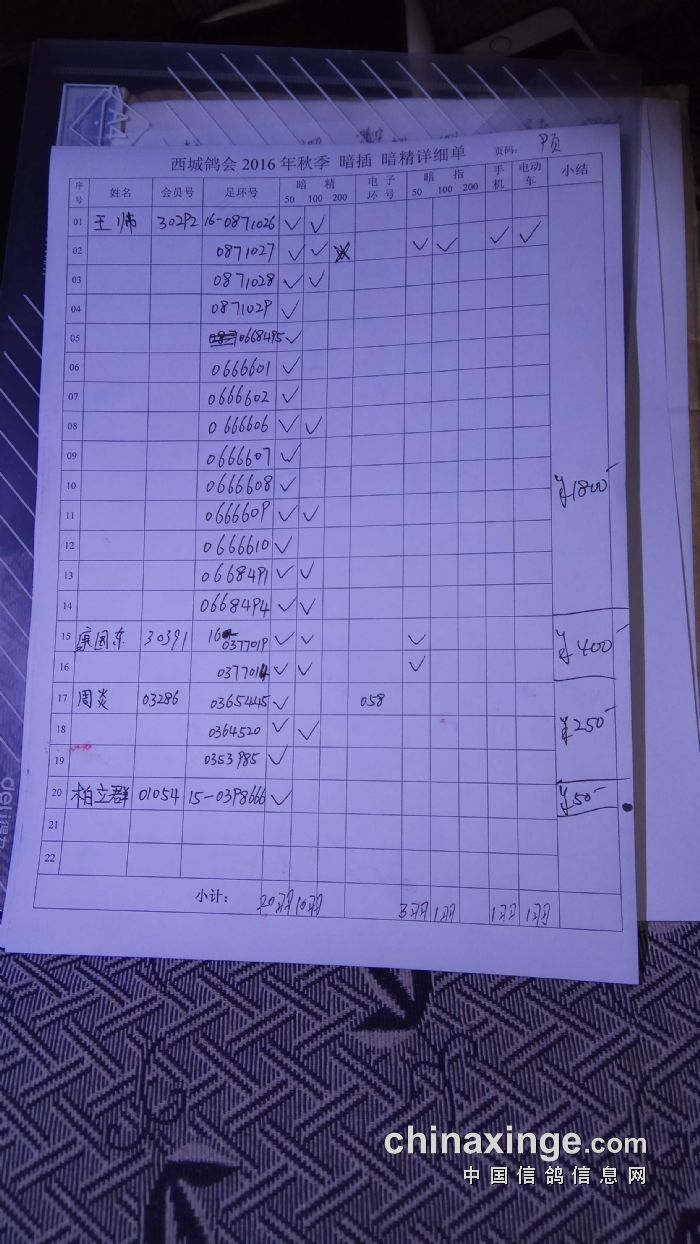 A4
西城鸽会 2016 年秋季 暗插 暗精详细单 页码:
序号 姓名 会员号 足环号 暗 精 50 100 200 电子环号 暗 指 50 100 200 手机 电动车 小结
01 王帅 30292 16-0871026 ✓ ✓
02 0871027 ✓ ✓ ✓ ✓ ✓ ✓
03 0871028 ✓ ✓
04 0871029 ✓
05 0668495 ✓
06 0666601 ✓
07 0666602 ✓
08 0666606 ✓ ✓
09 0666607 ✓
10 0666608 ✓
11 0666609 ✓ ✓
12 0666610 ✓
13 0668491 ✓ ✓
14 0668494 ✓ ✓
¥1800-
15 康国东 30391 16-0377019 ✓ ✓ ✓
16 0377014 ✓ ✓ ✓
¥400-
17 周炎 03286 0365445 ✓ 058
18 0364520 ✓ ✓
19 0353985 ✓
¥250-
20 柏立群 01054 15-0398666 ✓
¥50-
21
22
小计: 20羽 10羽 3羽 1羽 1羽 1羽
deli得力
chinaxinge.com
中国信鸽信息网